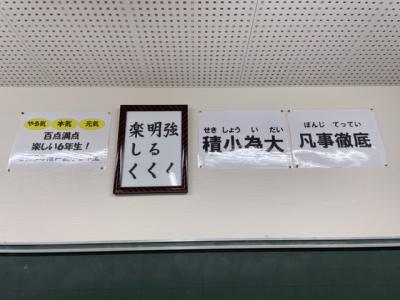 やる気 本気 元気
百点満点
楽しい6年生！
強く
明るく
楽しく
せき しょう い だい
積小為大
ぼんじ てってい
凡事徹底